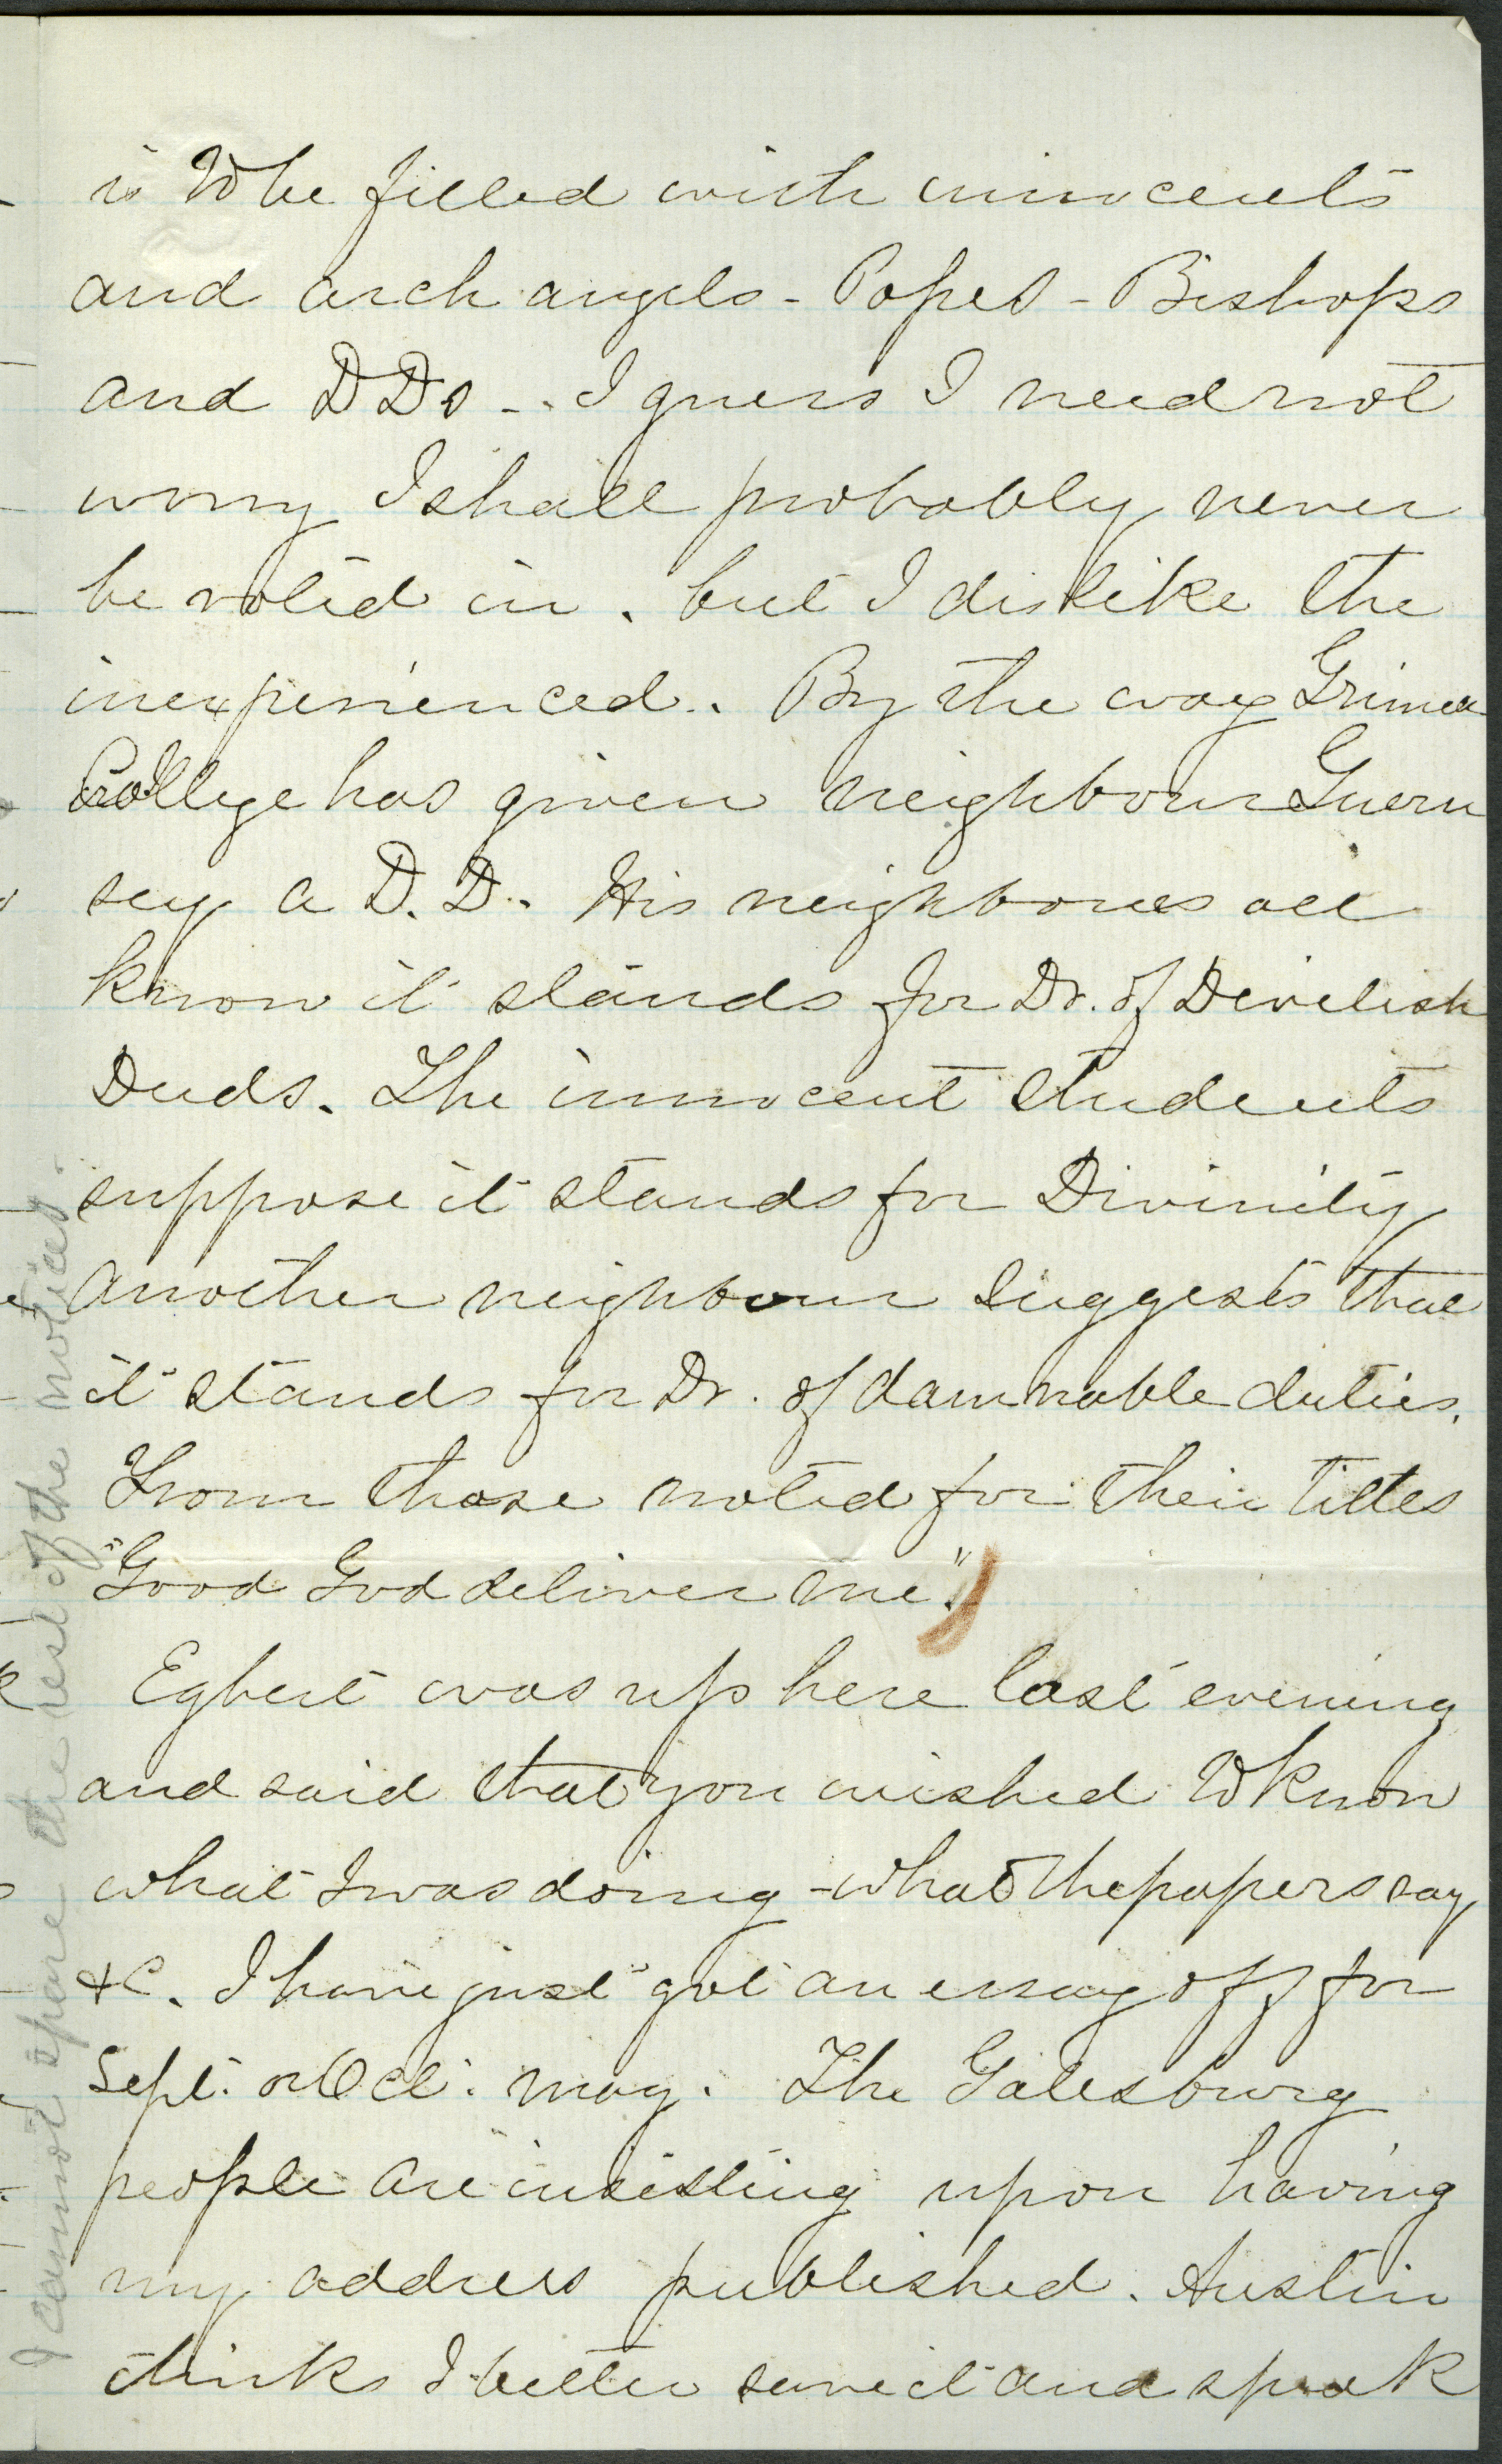 is to be filled with innocents
and arch angels - Popes - Bishops
and D Ds -. I guess I need not
worry I shall probably never
be voted in. but I dislike the
inexperienced. By the way
College has given neighbour Guern
sey a D. D. His neighbours all
know it stands for Dr. of Devilish
Duds. The innocent students
suppose it stands for Divinity
another neighbour suggests that
it stands for Dr. of damnable duties.
From those noted for their titles
"Good God deliver me."
Egbert was up here last evening
and said that you wished to know
what I was doing - what the papers say
&c. I have just got an essay off for
Sept. or Oct. mag. The Galesburg
people are insisting upon having
my address published. Austin
thinks I better save it and speak
I cannot spare the rest of the notices.